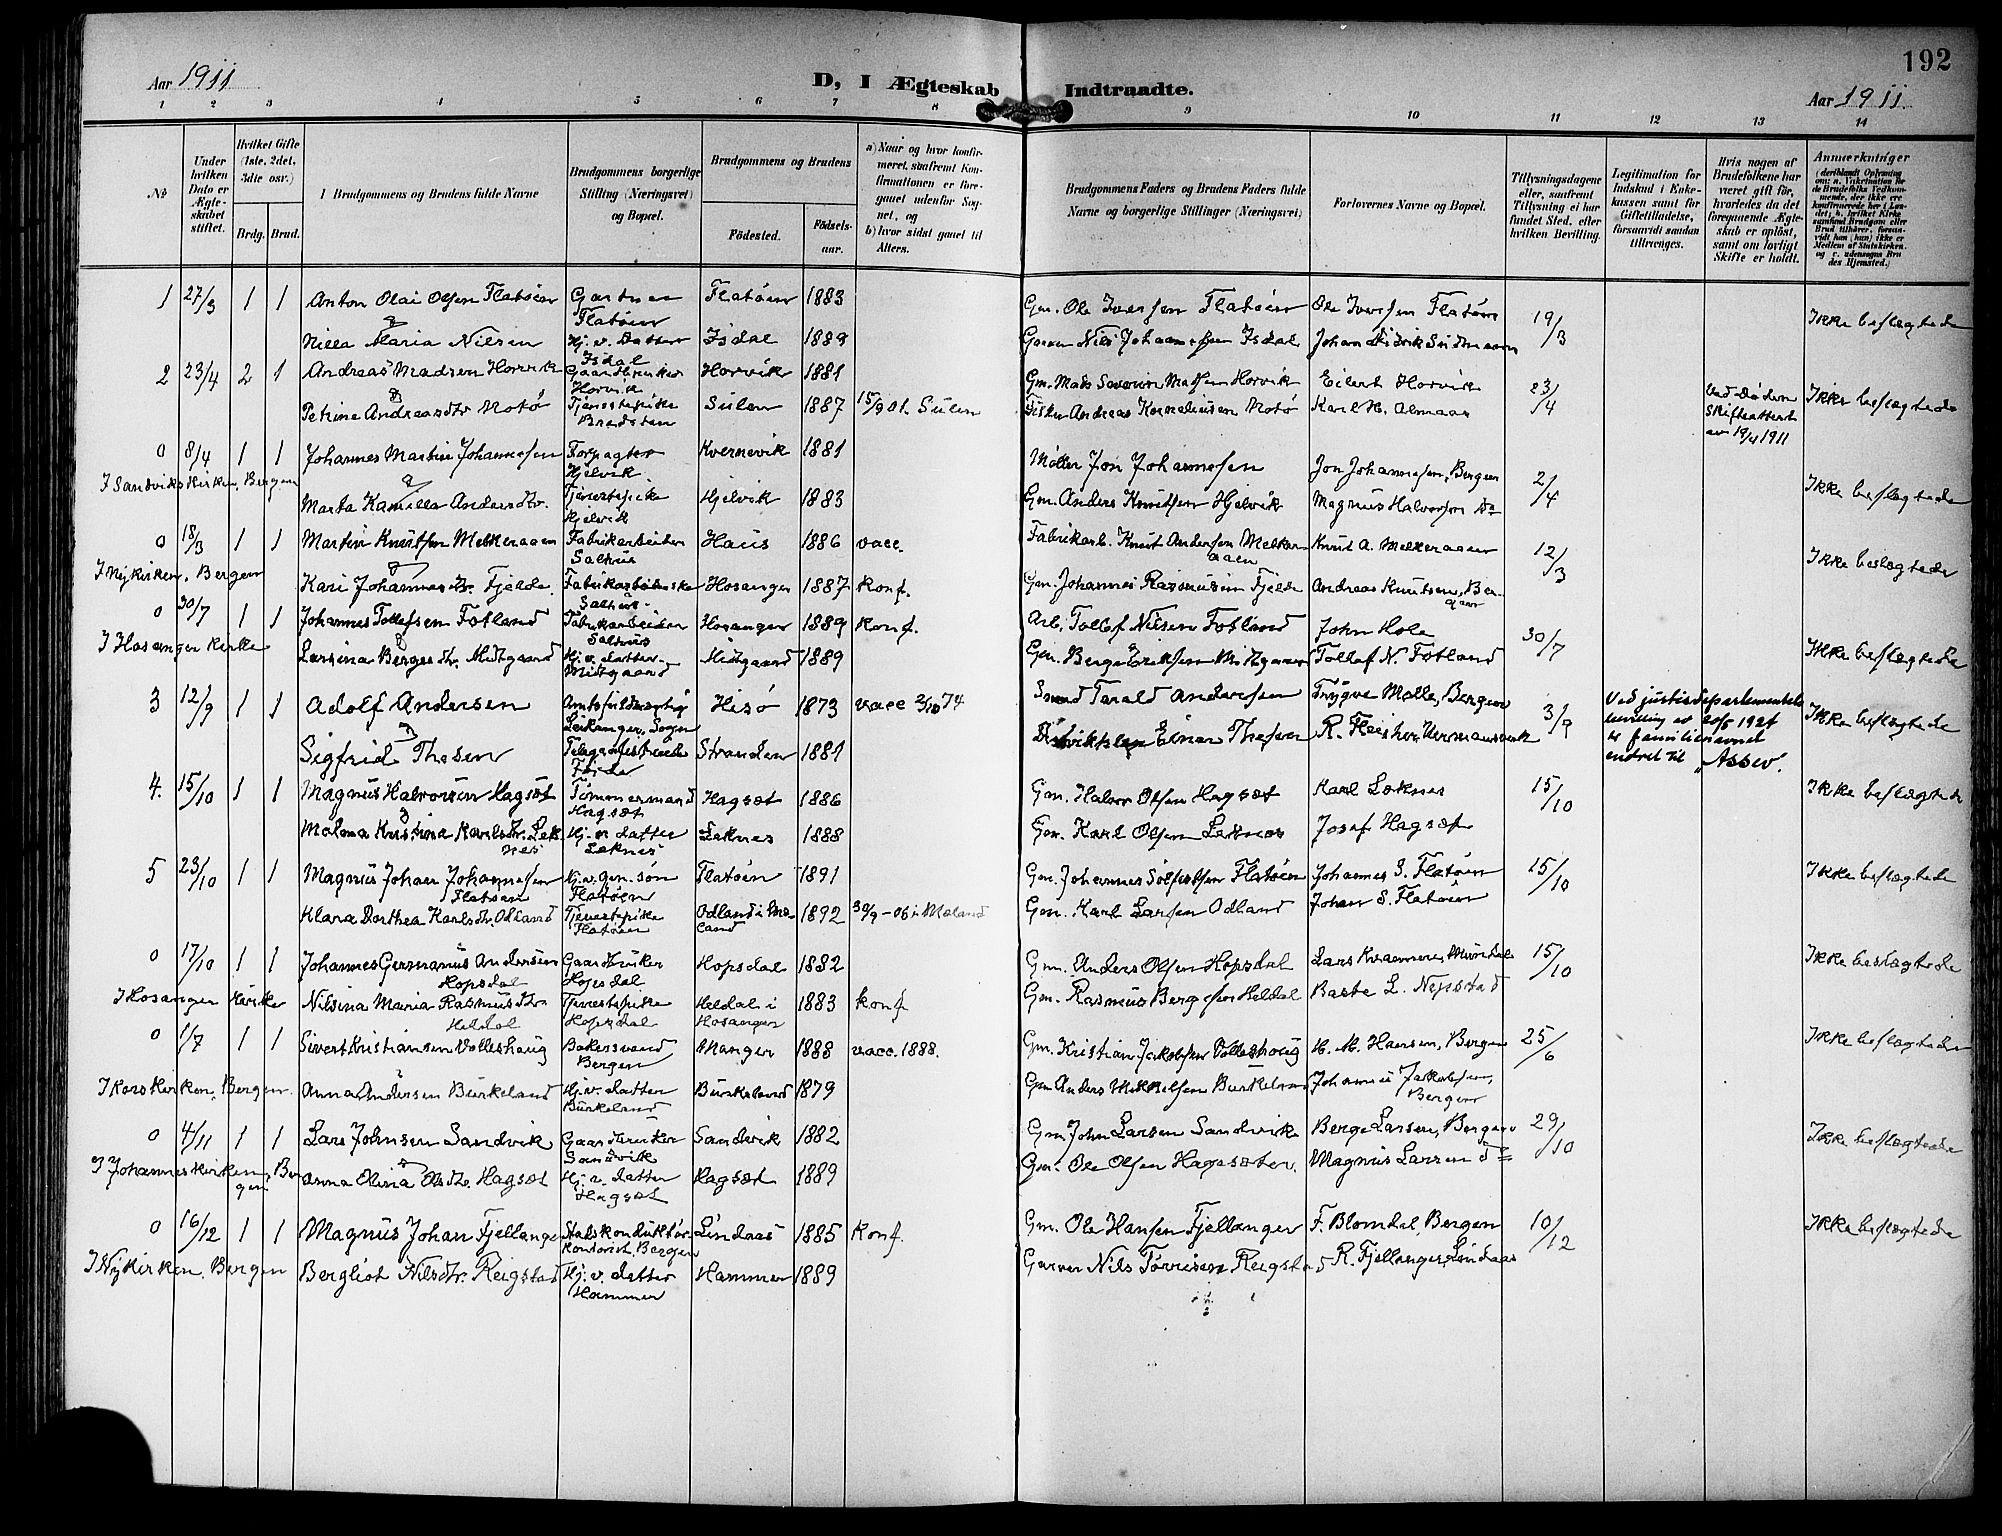 192
Aar 1911
D, I Ægteskab Indtraadte.
Aar 1911.
1 2 3 4 5 6 7 8 9 10 11 12 13 14
No
Under hvilken Dato er Ægteskabet stiftet.
Hvilket Gifte (1ste, 2det, 3die osv.)
Brdg. Brud.
1 Brudgommens og Brudens fulde Navne
Brudgommens borgerlige Stilling (Næringsvei) og Bopæl.
Brudgommens og Brudens
Fødested.
Fødselsaar.
a) Naar og hvor konfirmeret, saafremt Konfirmationen er foregaaet udenfor Sognet, og
b) hvor sidst gaaet til Alters.
Brudgommens Faders og Brudens Faders fulde Navne og borgerlige Stillinger (Næringsvei)
Forlovernes Navne og Bopæl.
Tillysningsdagene eller, saafremt Tillysning ei har fundet Sted, efter hvilken Bevilling.
Legitimation for Indskud i Enkekassen samt for Giftetilladelse, forsaavidt saadan tiltrænges.
Hvis nogen af Brudefolkene har været gift før, hvorledes da det foregaaende Ægteskab er opløst, samt om lovligt Skifte er holdt.
Anmærkninger
1 27/3 1 1 Anton Olai Olsen Flatøen Gartner Flatøen Flatøen 1883 Gm. Ole Iversen Flatøen Ole Iversen Flatøen 19/3 Ikke beslægtede
Nilla Maria Nilsen Hj.v. Datter Isdal Isdal 1889 Garver Nils Johannessen Isdal Johan Didrik
2 23/4 2 1 Andreas Madsen Horvik Gaardbruker Horvik Horvik 1881 Gm. Mads Severin Madsen Horvik Eilert Horvik 23/4 Ved døden Skifteattest av 19/4 1911 Ikke beslægtede
Petrine Andreasdtr. Notø Tjenestepike Bredsten Sulen 1887 15/9 01. Sulen Fisker Andreas Korneliussen Notø Karl H. Almaas
0 8/4 1 1 Johannes Martin Johannessen Forpagter Hjelvik Kvernevik 1881 Møller Jon Johannesen Jon Johannesen, Bergen 2/4 Ikke beslægtede
I Sandvikskirken, Bergen
Marta Kamilla Andersdtr. Tjenestepike Hjelvik Hjelvik 1883 Gm. Anders Knutsen Hjelvik Magnus Halvorsen do
0 18/3 1 1 Martin Knutsen Melkeraaen Fabrikarbeider Salhus Haus 1886 vacc. Fabrikarb. Knut Andersen Melkeraaen Knud A. Melkeraaen 12/3 Ikke beslægtede
I Nykirken, Bergen
Kari Johannesdtr. Fjelde. Fabrikarbeiderske Salhus. Hosanger 1887 Konf. Gm. Johannes Rasmussen Fjelde Andreas Knutsen, Bergen
0 30/7 1 1 Johannes Tollefsen Fotland Fabrikarbeider Salhus Hosanger 1889 Konf. Arb. Tollef Nilsen Fotland John Hole 30/7 Ikke beslægtede
I Hosanger Kirke
Larsina Bergesdtr. Midtgaard Hj.v. datter Midtgaard Midtgaard 1889 Gm. Berge Eriksen Midtgaard Tollef N. Fotland
3 12/9 1 1 Adolf Andersen Amtsfuldmægtig Leikanger, Sogn Hisø 1873 vacc 3/10 74 Tarald Andersen Trygve Molle, Bergen 3/9 Ved justisdepartementets av 20/5 1921 er familienavnet endret til „Assev. Ikke beslægtede
Sigfrid Thesen Stranden 1881 Einar Thesen R. Fleischer, Hermansverk
4. 15/10 1 1 Magnus Halvorsen Hagsæt Tømmermand Hagsæt Hagsæt 1886 Gm. Halvor Olsen Hagsæt Karl Leknes 15/10 Ikke beslægtede
Malena Kristina Karlsdtr. Leknes Hj.v. datter Leknes Leknes 1888 Gm. Karl Olsen Leknes Josef Hagsæt
5 23/10 1 1 Magnus Johan Johannesen Flatøen Hj.v. gm. søn Flatøen Flatøen 1891 Gm. Johannes Flatøen Johannes S. Flatøen 15/10 Ikke beslægtede
Klara Dorthea Karlsdtr. Odland Tjenestepike Flatøen Odland i Mæland 1892 30/9 - 06 i Mæland Gm. Karl Larsen Odland Johan S. Flatøen
0 17/10 1 1 Johannes Germanus Andersen Hopsdal Gaardbruker Hopsdal Hopsdal 1882 Gm. Anders Olsen Hopsdal Lars 15/10 Ikke beslægtede
I Hosanger Kirke Nilsina Maria Rasmusdtr. Heldal Tjenestepike Hopsdal Heldal i Hosanger 1883 Konf Gm. Rasmus Bergesen Heldal
0 1/7 1 1 Sivert Kristiansen Volleshaug Bakersvend Bergen Manger 1888 vacc. 1888. Gm. Kristian Jakobsen Volleshoug H. M. Hansen, Bergen 25/6 Ikke beslægtede
I Korskirken, Bergen. Anna Andersen Burkeland Hj.v. datter Burkeland Burkeland 1879 Gm Anders Mikkelsen Burkeland Johannes Jakobsen, Bergen
0 4/11 1 1 Lars Johnsen Sandvik Gaardbruker Sandvik Sandvik 1882 Gm. John Larsen Sandvik Berge Larsen, Bergen 29/10 Ikke beslægtede
I Johanneskirken, Bergen Anna Olina Olsdtr. Hagsæt Hj.v. datter Hagsæt Hagsæt 1889 Gm. Ole Olsen Hagesæter. Magnus Larsen do
0 16/12 1 1 Magnus Johan Fjellanger Bergen Lindaas 1885 Konf. Gm. Ole Hansen Fjellanger F. Blomdal, Bergen 10/12 Ikke beslægtede
I Nykirken, Bergen Bergliot Nilsdtr. Reigstad Hj.v. datter Hammer Hammer 1889 Garver Nils Tørrisen Reigstad R. Fjellanger, Lindaas